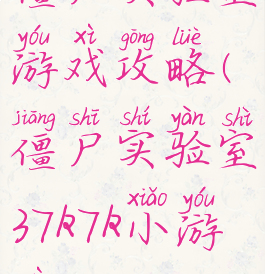 僵尸实验室
yóu xì gōng lüè
游戏攻略(
jiāng shī shí yàn shì
僵尸实验室
xiǎo yóu
37k7k小游